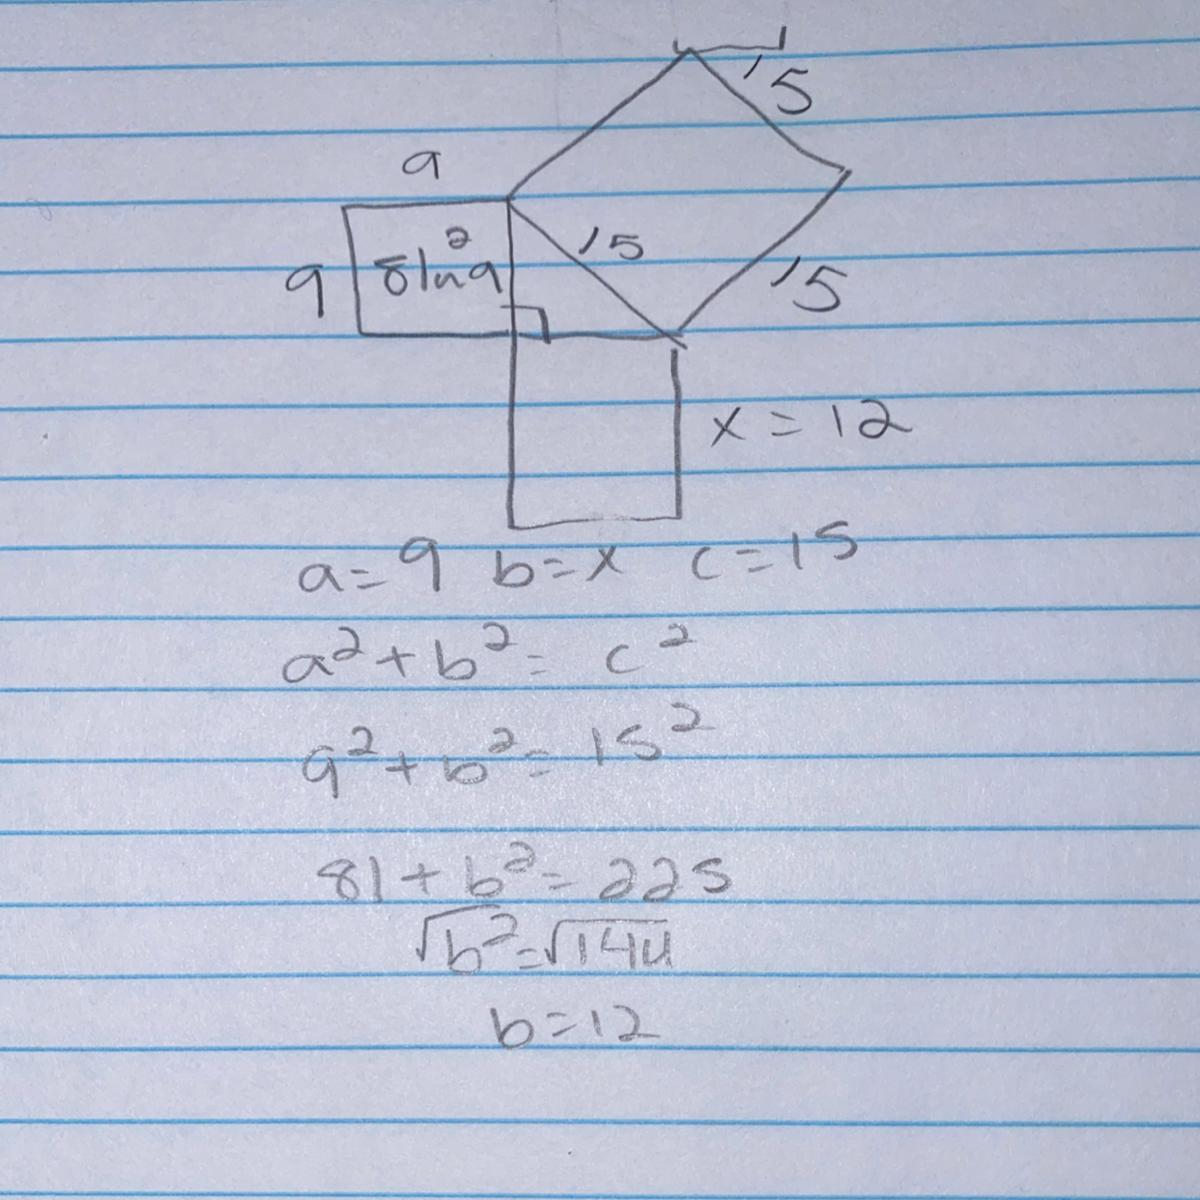 15
9
15
9
81 in²
15
x = 12
a = 9 b = x c = 15
a² + b² = c²
9² + b² = 15²
81 + b² = 225
√b² = √144
b = 12